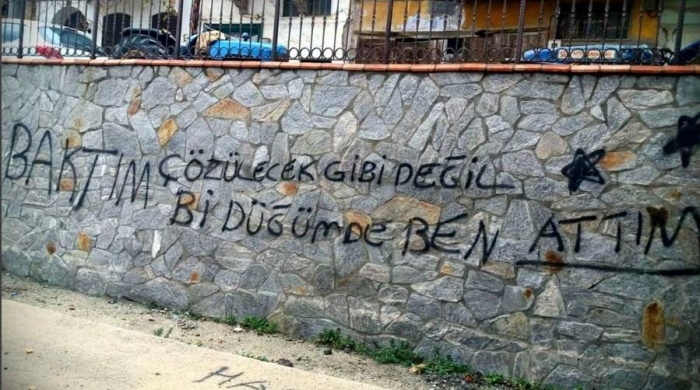 BAKTIM ÇÖZÜLECEK GİBİ DEĞİL
Bİ DÜĞÜMDE BEN ATTIM